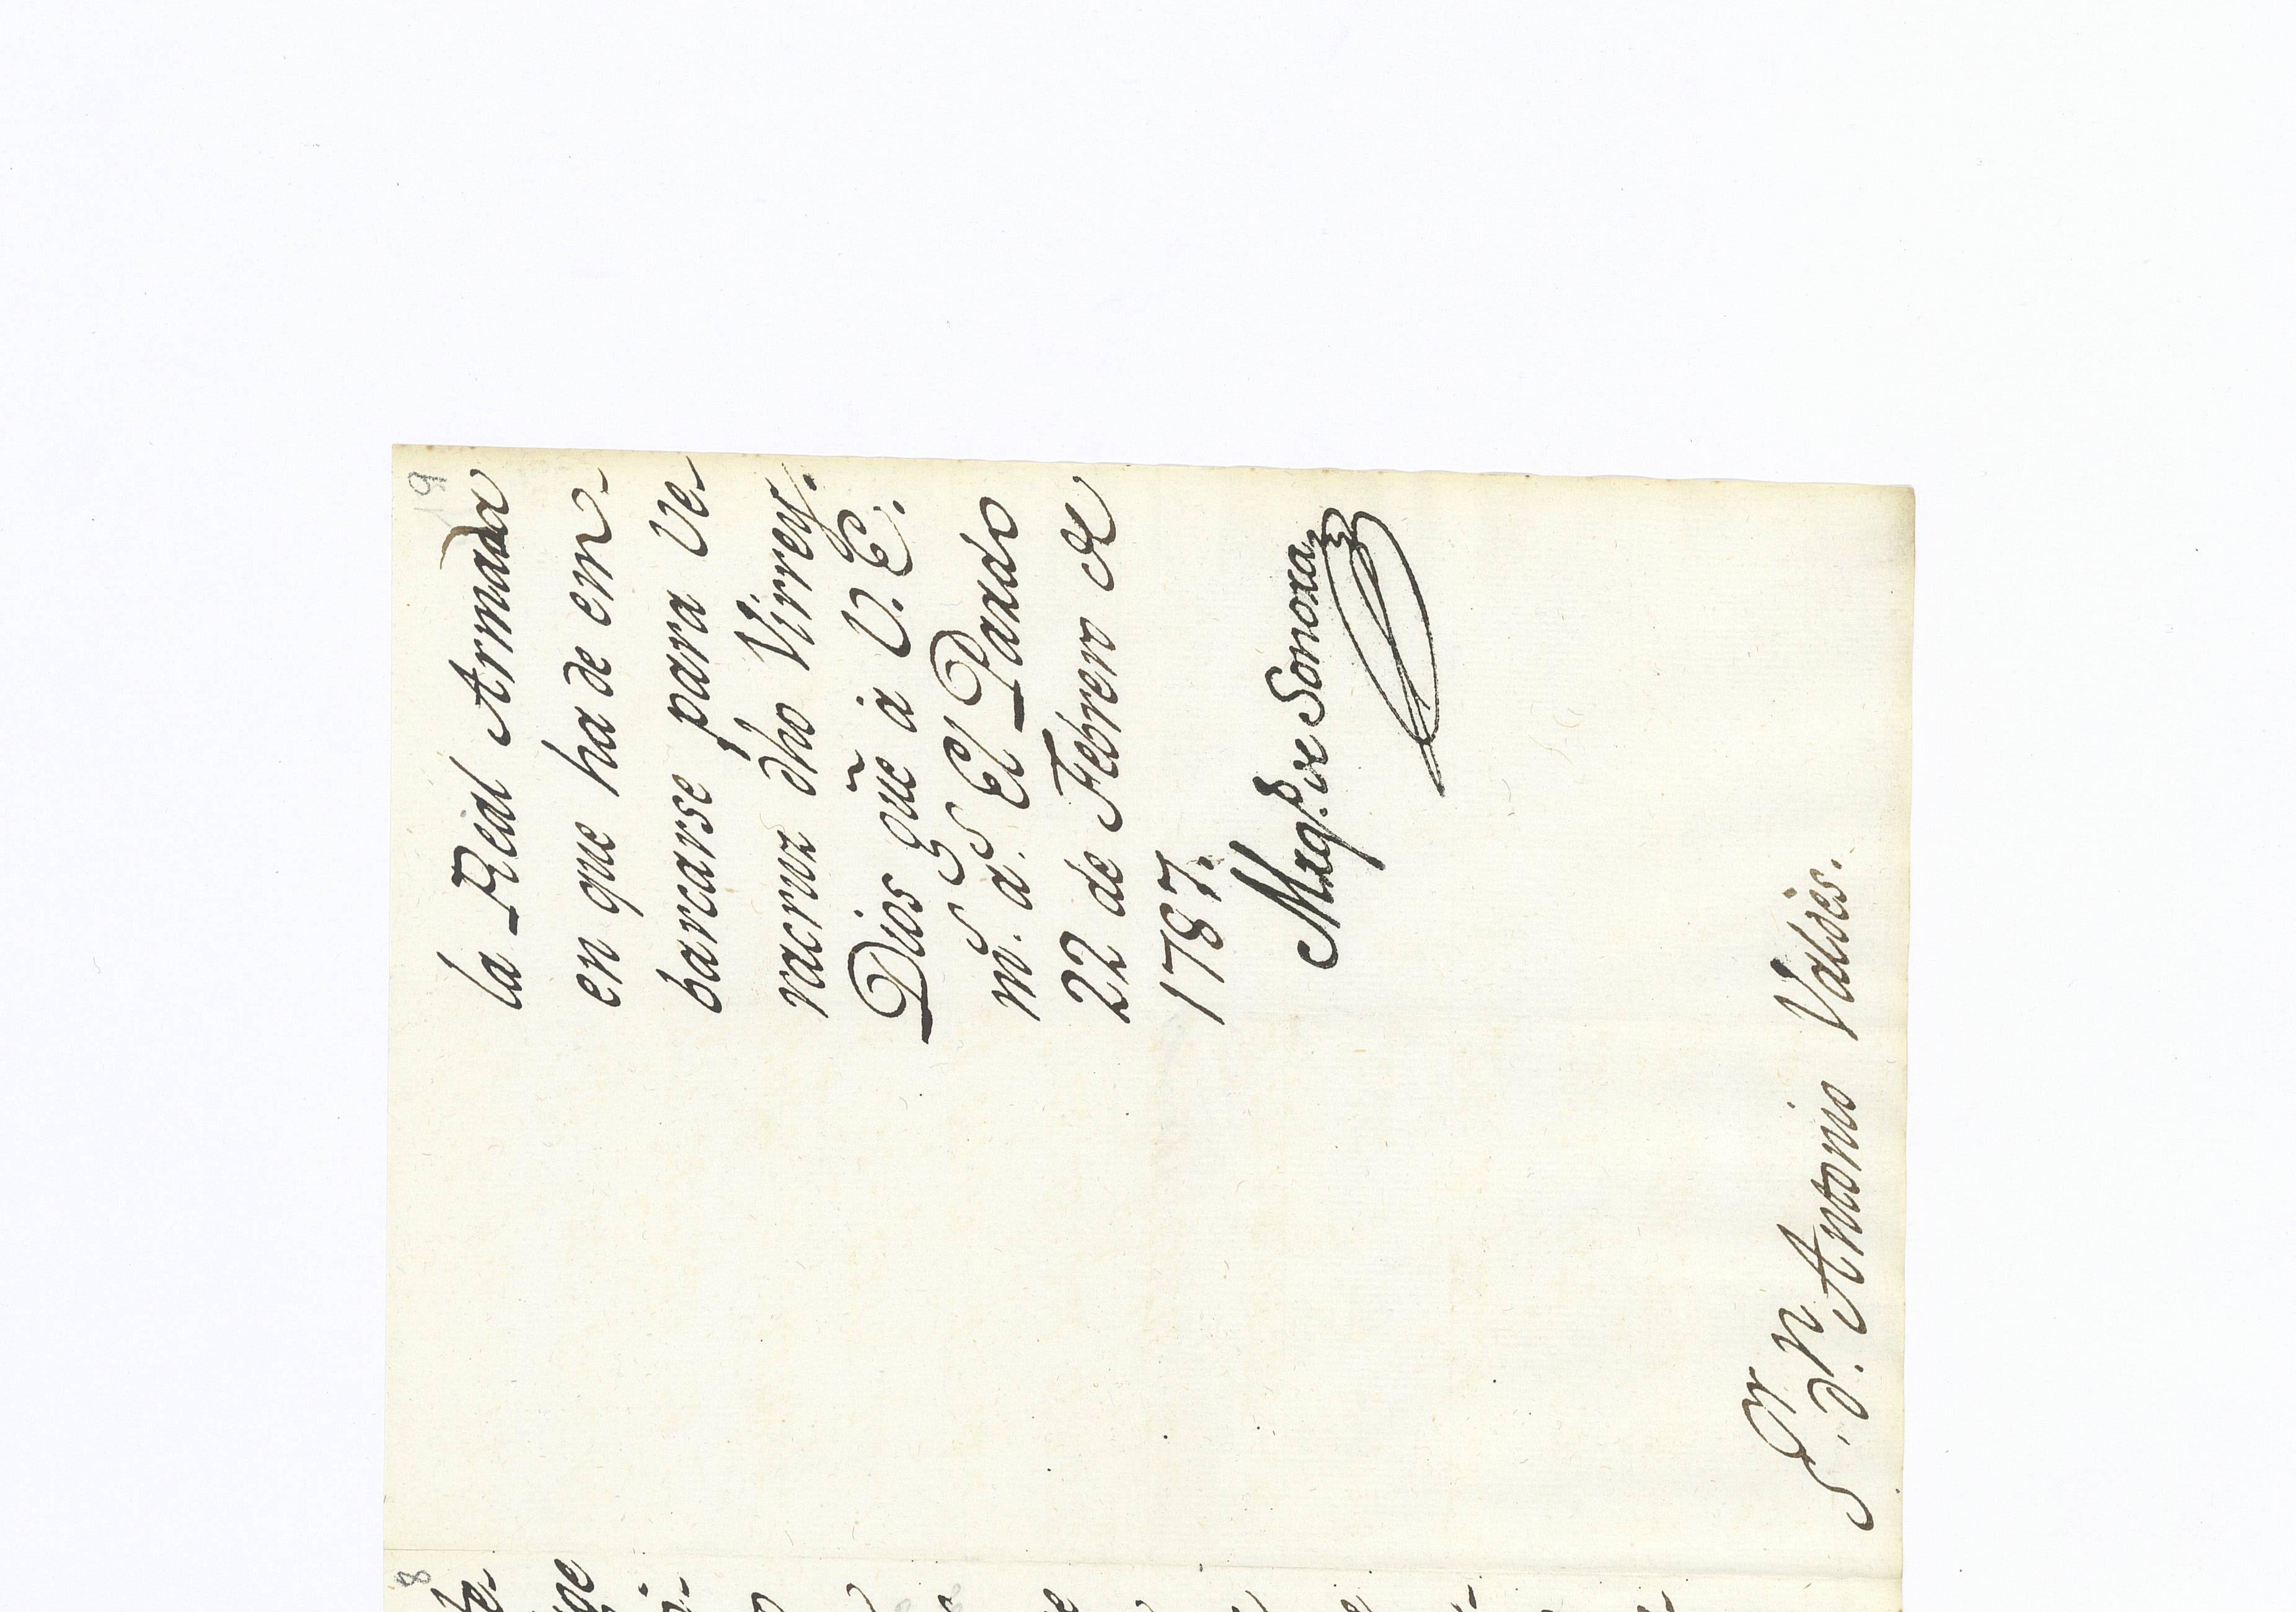 9
la Real Armada
en que ha de em-
barcarse para Ve-
racruz dho Virrey.
Dios gũe à V. E.
m.s a.s El Pardo
22 de Febrero de
1787.
Marq.s de Sonora
S.or D.n Antonio Valdès.
8